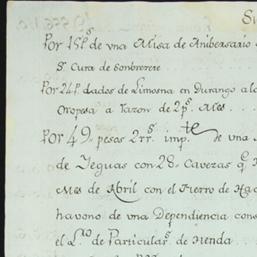 Si
Por 15 p.s de vna Misa de Aniversario
S.r Cura de Sonbrerete
Por 24 p. dados de Limosna en Durango a lo
Oropesa a razon de 2 p.s Mes
Por 49 pesos 2 rr.s imp.te de vna
de Yeguas con 28 Cavezas q.e
Mes de Abril con el Fierro de Hac
havono de vna Dependencia cons
el L.do de Particular.s de Henda